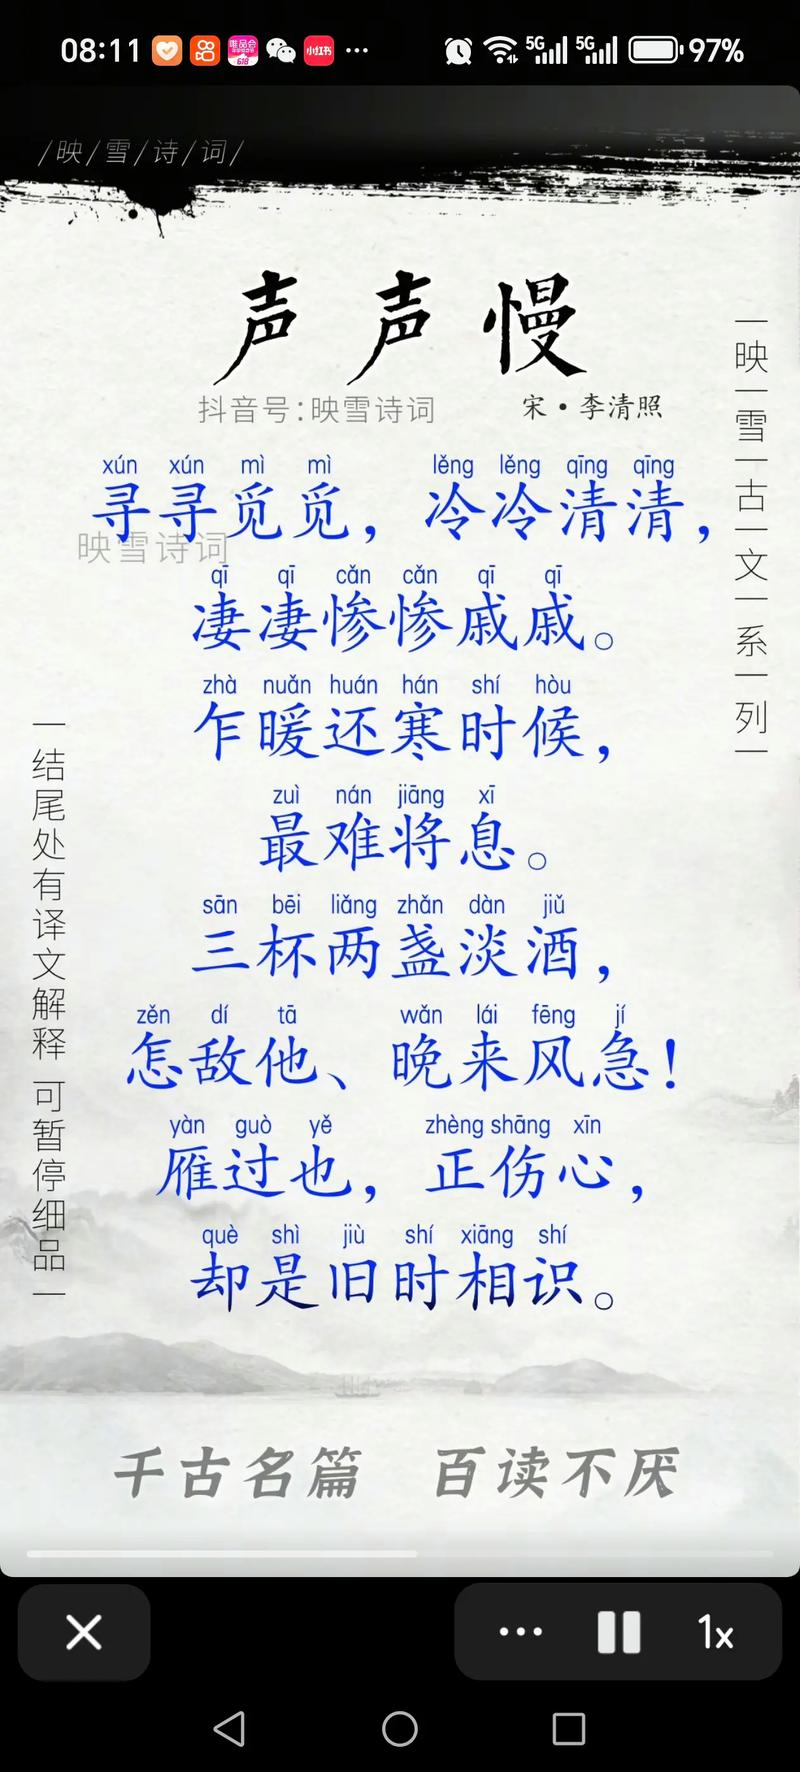 08:11 唯品会 618 小红书 ··· 5G 5G 97%
/映/雪/诗/词/
声声慢
抖音号:映雪诗词 宋·李清照
xún xún mì mì lěng lěng qīng qīng
寻寻觅觅，冷冷清清，
映雪诗词
qī qī cǎn cǎn qī qī
凄凄惨惨戚戚。
zhà nuǎn huán hán shí hòu
乍暖还寒时候，
zuì nán jiāng xī
最难将息。
sān bēi liǎng zhǎn dàn jiǔ
三杯两盏淡酒，
zěn dí tā wǎn lái fēng jí
怎敌他、晚来风急！
yàn guò yě zhèng shāng xīn
雁过也，正伤心，
què shì jiù shí xiāng shí
却是旧时相识。
|映|雪|古|文|系|列|
|结尾处有译文解释 可暂停细品|
千古名篇 百读不厌
1x